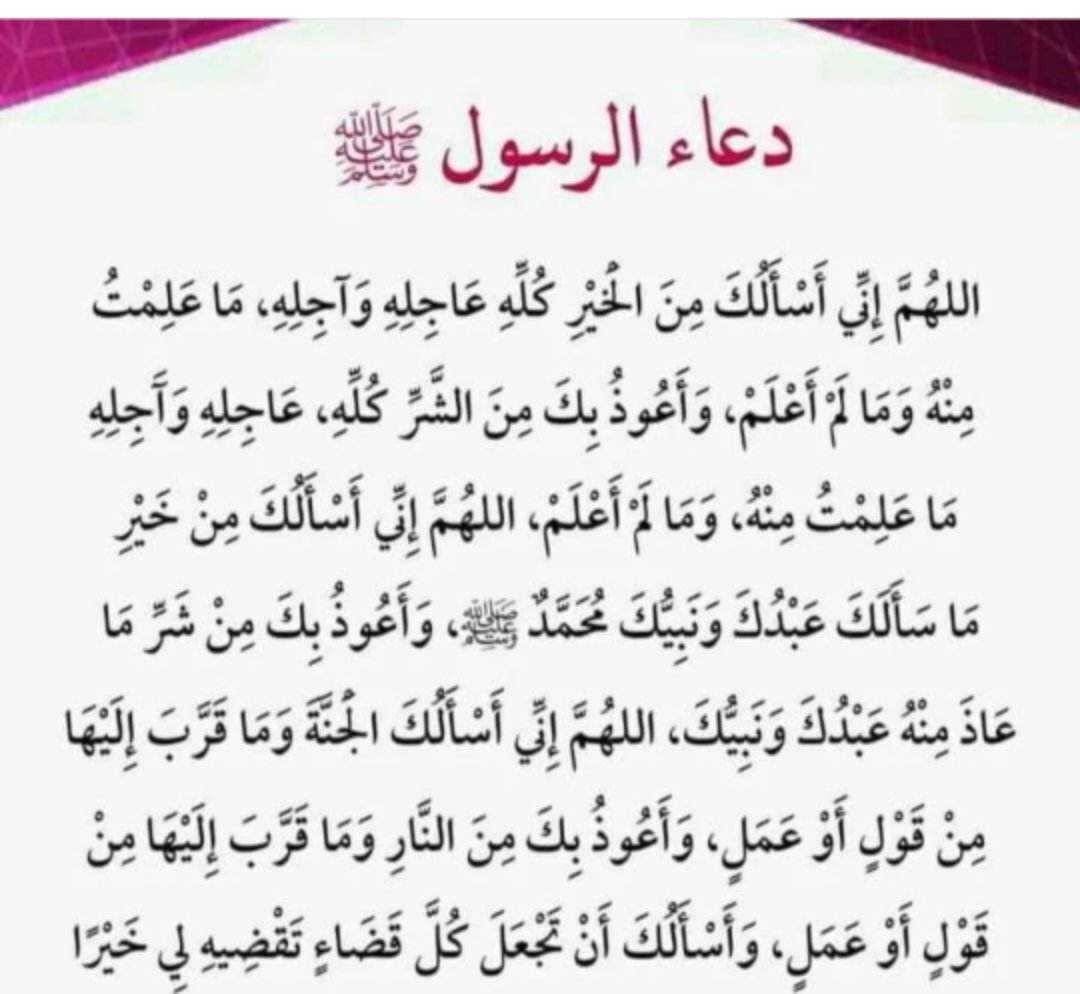 دعاء الرسول ﷺ
اللهُمَّ إِنِّي أَسْأَلُكَ مِنَ الْخَيْرِ كُلِّهِ عَاجِلِهِ وَآجِلِهِ، مَا عَلِمْتُ
مِنْهُ وَمَا لَمْ أَعْلَمْ، وَأَعُوذُ بِكَ مِنَ الشَّرِّ كُلِّهِ، عَاجِلِهِ وَآجِلِهِ
مَا عَلِمْتُ مِنْهُ، وَمَا لَمْ أَعْلَمْ، اللهُمَّ إِنِّي أَسْأَلُكَ مِنْ خَيْرِ
مَا سَأَلَكَ عَبْدُكَ وَنَبِيُّكَ مُحَمَّدٌ ﷺ، وَأَعُوذُ بِكَ مِنْ شَرِّ مَا
عَاذَ مِنْهُ عَبْدُكَ وَنَبِيُّكَ، اللهُمَّ إِنِّي أَسْأَلُكَ الْجَنَّةَ وَمَا قَرَّبَ إِلَيْهَا
مِنْ قَوْلٍ أَوْ عَمَلٍ، وَأَعُوذُ بِكَ مِنَ النَّارِ وَمَا قَرَّبَ إِلَيْهَا مِنْ
قَوْلٍ أَوْ عَمَلٍ، وَأَسْأَلُكَ أَنْ تَجْعَلَ كُلَّ قَضَاءٍ تَقْضِيهِ لِي خَيْرًا